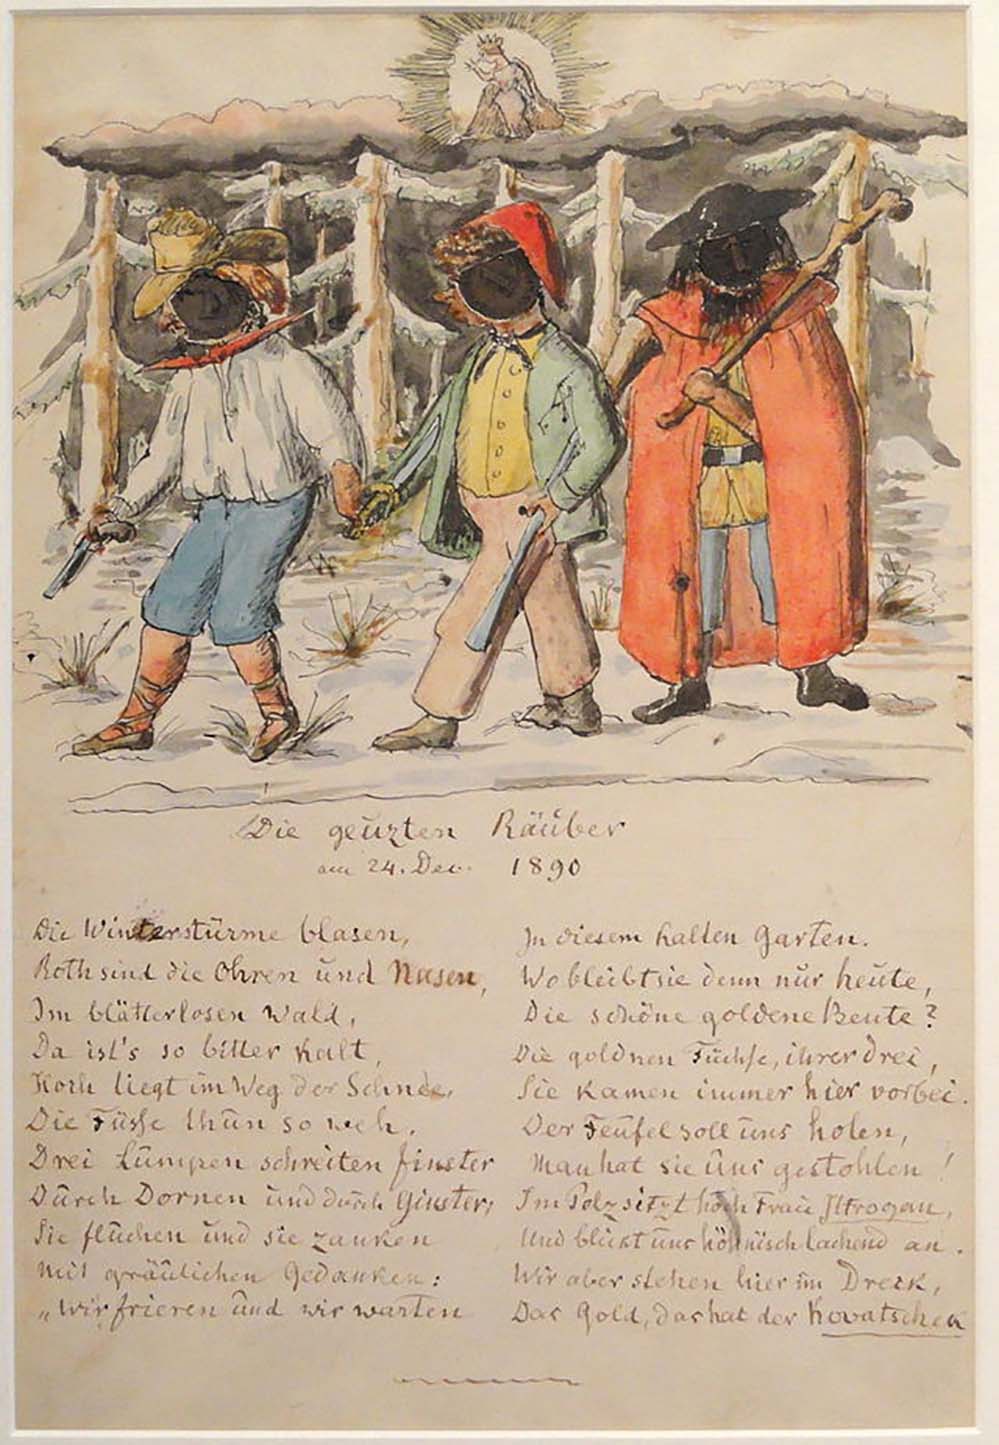 Die geuzten Räuber
am 24. Dec. 1890
Die Winterstürme blasen,
Roth sind die Ohren und Nasen,
Im blätterlosen Wald,
Da ist's so bitter kalt,
Hoch liegt im Weg der Schnee,
Die Füsse thun so weh.
Drei Lumpen schreiten finster
Durch Dornen und durch Ginster,
Sie fluchen und sie zanken
Mit gräulichen Gedanken:
„Wir frieren und wir warten
In diesem kalten Garten.
Wo bleibt sie denn nur heute,
Die schöne goldene Beute?
Die goldnen Füchse, ihrer drei,
Sie kamen immer hier vorbei.
Der Teufel soll uns holen,
Man hat sie uns gestohlen!
Im Polz sitzt hoch Frau
Und blickt uns höhnisch lachend an.
Wir aber stehen hier im Dreck,
Das Gold, das hat der Kovatscheck